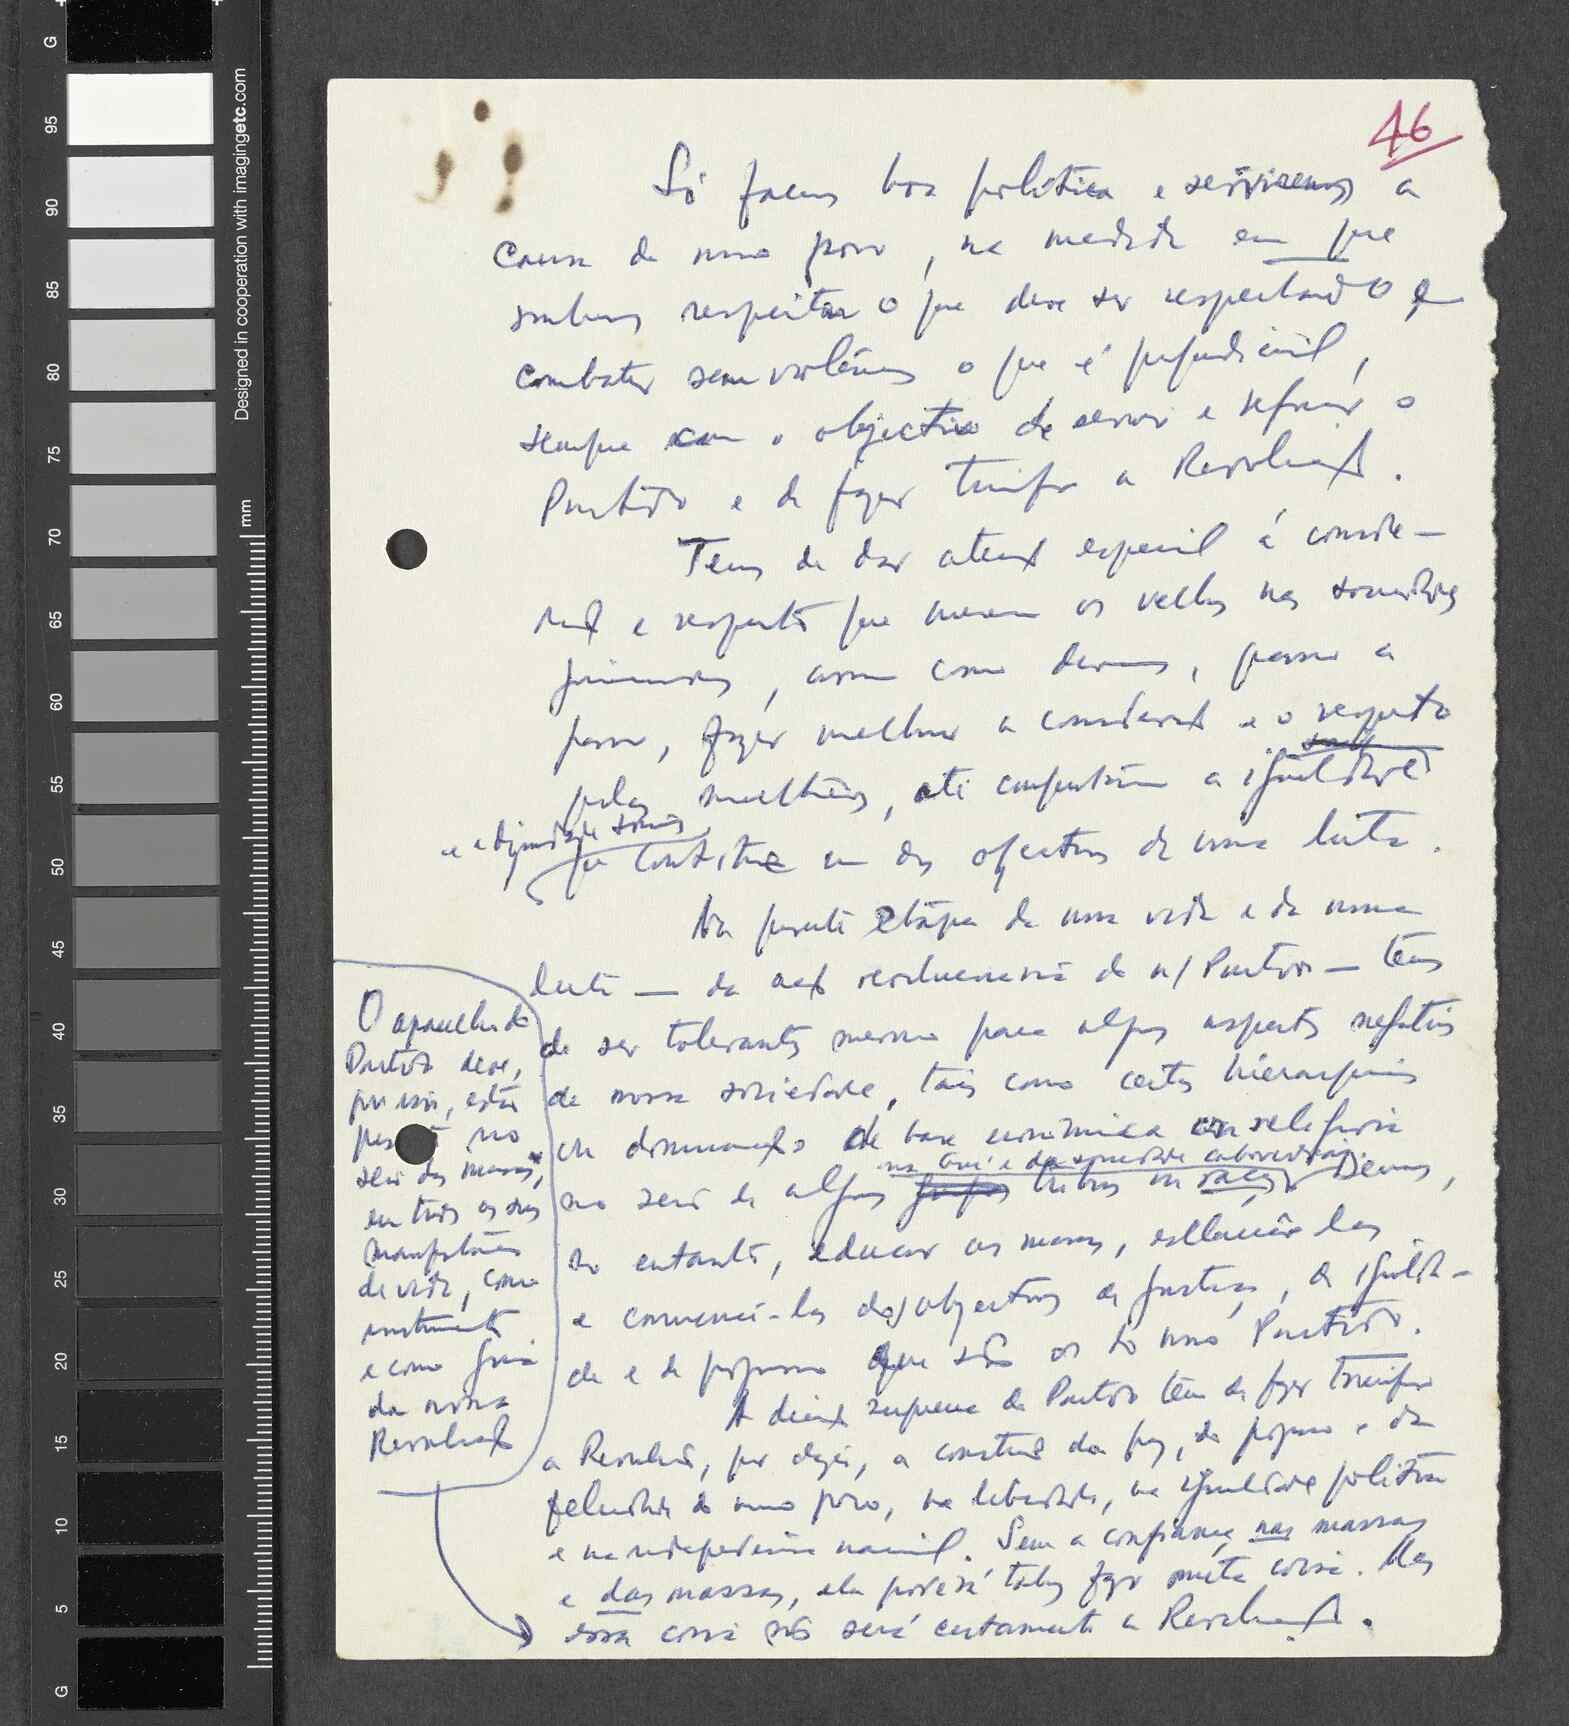 46
Só fazemos boa política e serviremos a
causa do nosso povo, na medida em que
soubermos respeitar o que deve ser respeitado e
combater sem violências o que é prejudicial,
sempre com o objectivo de servir e reforçar o
Partido e de fazer triunfar a Revolução.
Temos de dar atenção especial à conside-
ração e respeito que merecem os velhos nas sociedades
africanas, assim como devemos, passo a
passo, fazer melhorar a consideração e o respeito
pelas mulheres, até conquistarem a igualdade
e a dignidade sociais
que constitue um dos objectivos da nossa luta.
Na presente etapa da nossa vida e da nossa
luta — da acção revolucionária do n/ Partido — temos
de ser tolerantes mesmo para alguns aspectos negativos
da nossa sociedade, tais como certas hierarquias
ou dominações de base económica ou religiosa
na Guiné e da sociedade caboverdiana
no seio de alguns grupos tribos ou raças. Devemos,
no entanto, educar as massas, esclarecê-las
e convencê-las dos objectivos de justiça, de igualda-
de e de progresso que são os do nosso Partido.
A direcção suprema do Partido tem de fazer triunfar
a Revolução, quer dizer, a construção da paz, do progresso e da
felicidade do nosso povo, na liberdade, na igualdade política
e na independência nacional. Sem a confiança nas massas
e das massas, ela poderá talvez fazer muita coisa. Mas
essa coisa não será certamente a Revolução.
O aparelho do
Partido deve,
por isso, estar
presente no
seio das massas,
em todas as suas
manifestações
de vida, como
instrumento
e como guia
da nossa
Revolução
G
95
90
85
80
75
70
65
60
55
50
45
40
35
30
25
20
15
10
5
G
mm
Designed in cooperation with imagingetc.com